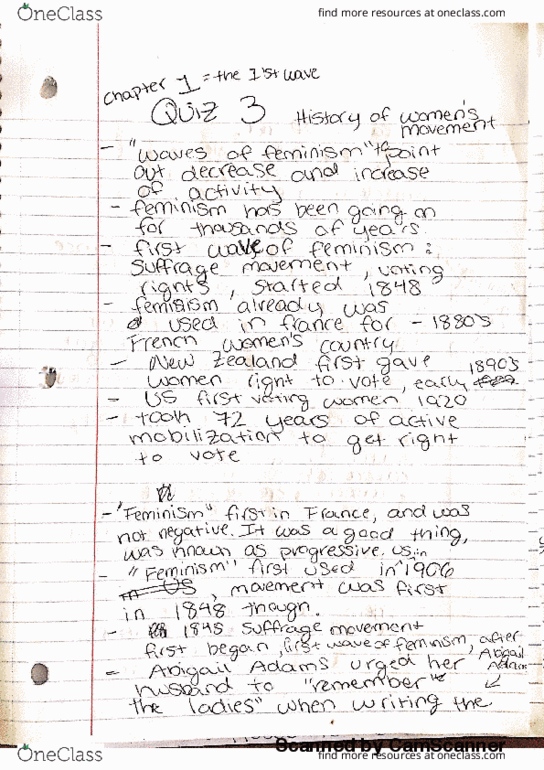 OneClass
find more resources at oneclass.com
chapter 1 = the 1st wave
Quiz 3 History of women's
movement
- "waves of feminism" to point
out decrease and increase
of activity
- feminism has been going on
for thousands of years.
- first wave of feminism :
suffrage movement, voting
rights, started 1848
- feminism already was
used in france for - 1880's
French women's country
- New Zealand first gave 1890's
women right to vote, early
- US first voting women 1920
- took 72 years of active
mobilization to get right
to vote
- "Feminism" first in France, and was
not negative. It was a good thing,
was known as progressive.
- "Feminism" first used in 1906 US, in
in US, movement was first
in 1848 though.
- 1848 suffrage movement
first began, first wave of feminism, after
Abigail
Adams
- Abigail Adams urged her
husband to "remember
the ladies" when writing the
Scanned by CamScanner
OneClass
find more resources at oneclass.com